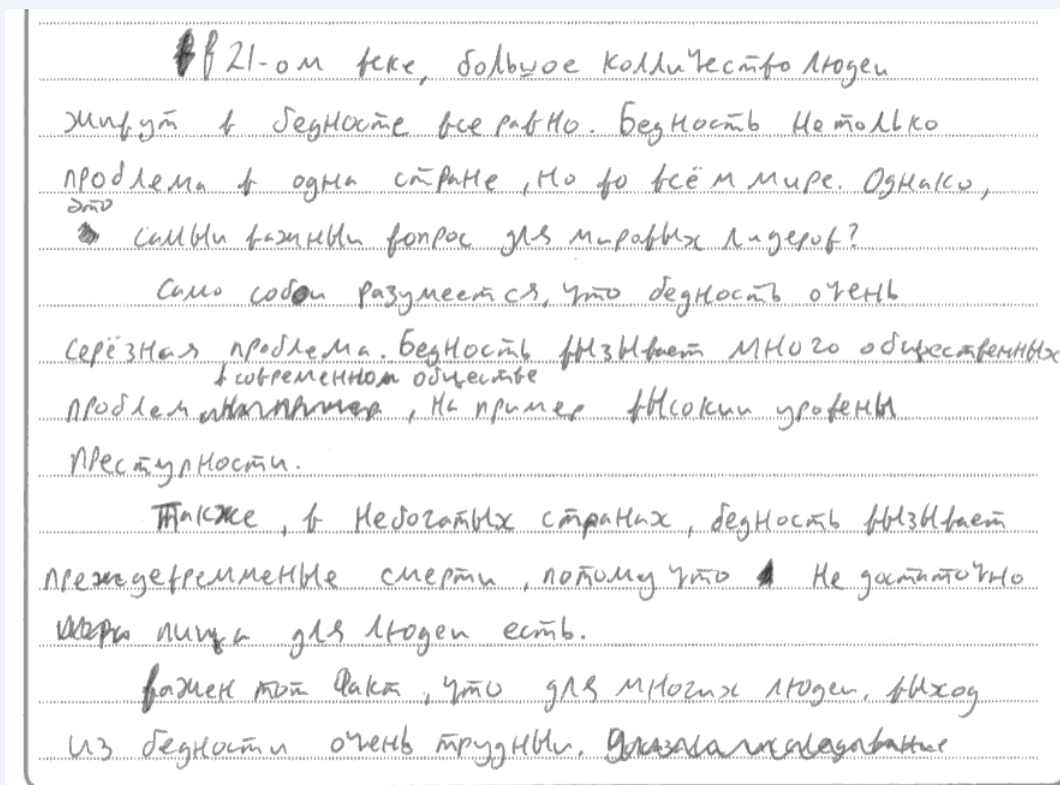 В 21-ом веке, большое колличество людей
живут в бедносте все равно. Бедность не только
проблема в одна стране, но во всём мире. Однако,
это самыи важныи вопрос для мировых лидеров?
Само собои разумеется, что бедность очень
серёзная проблема. Бедность вызывает много общественных
в современном обществе
проблем, на пример высокии уровены
преступности.
Также, в небогатых странах, бедность вызывает
преждевремменные смерти, потому что не достаточно
пища для людеи есть.
Важен тот факт, что для многих людеи, выход
из бедности очень трудныи.